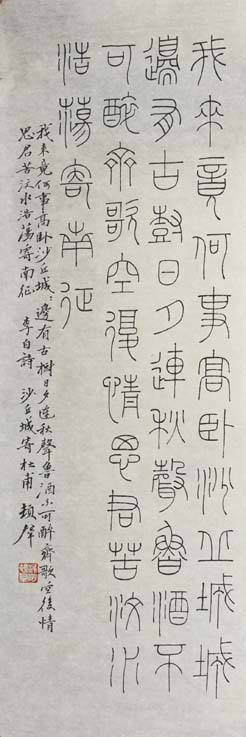 我來竟何事高卧沙丘城城
邊有古樹日夕連秋聲魯酒不
可醉齊歌空復情思君若汶水
浩蕩寄南征
我来竟何事高卧沙丘城〻邊有古樹日夕連秋聲魯酒不可醉齊歌空復情
思君若汶水浩蕩寄南征 李白詩 沙丘城寄杜甫